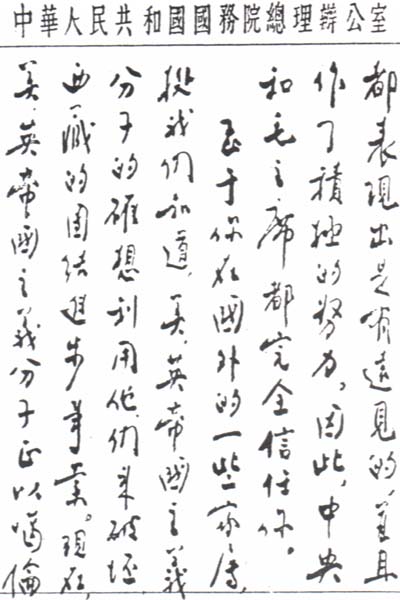 中華人民共和國國務院總理辦公室
都表現出是有遠見的，並且
作了積極的努力。因此，中央
和毛主席都完全信任你。
至于你在國外的一些家属，
據我們知道，美、英帝國主義
分子的確想利用他們來破坏
西藏的團结進步事業。現在，
美、英帝國主義分子正以噶倫